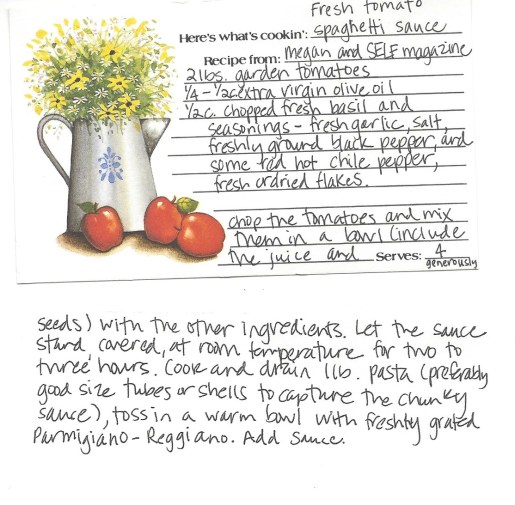 Fresh tomato
Here's what's cookin': spaghetti sauce
Recipe from: megan and SELF magazine
2 lbs. garden tomatoes
1/4 - 1/2 c. extra virgin olive oil
1/2 c. chopped fresh basil and
seasonings - fresh garlic, salt,
freshly ground black pepper, and
some red hot chile pepper,
fresh or dried flakes.
chop the tomatoes and mix
them in a bowl (include
the juice and Serves: 4
generously
seeds) with the other ingredients. Let the sauce
stand, covered, at room temperature for two to
three hours. Cook and drain 1 lb. pasta (preferably
good size tubes or shells to capture the chunky
sauce), toss in a warm bowl with freshly grated
Parmigiano-Reggiano. Add sauce.